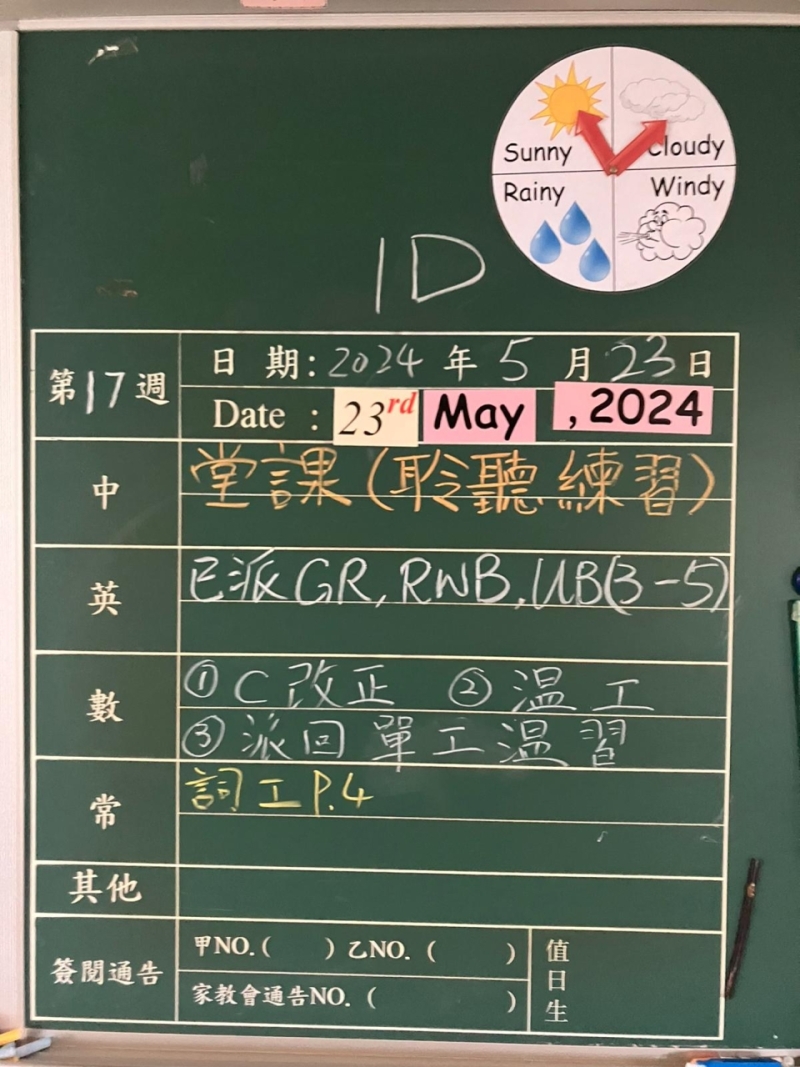 Sunny Cloudy
Rainy Windy
1D
第17週
日 期: 2024 年 5 月 23 日
Date : 23rd May , 2024
中
堂課(聆聽練習)
英
已派GR, RWB, UB(3-5)
數
① C 改正 ② 溫工
③ 派回單工溫習
常
詞工 P.4
其他
簽閱通告
甲NO.( ) 乙NO. ( )
家教會通告NO. ( )
值日生